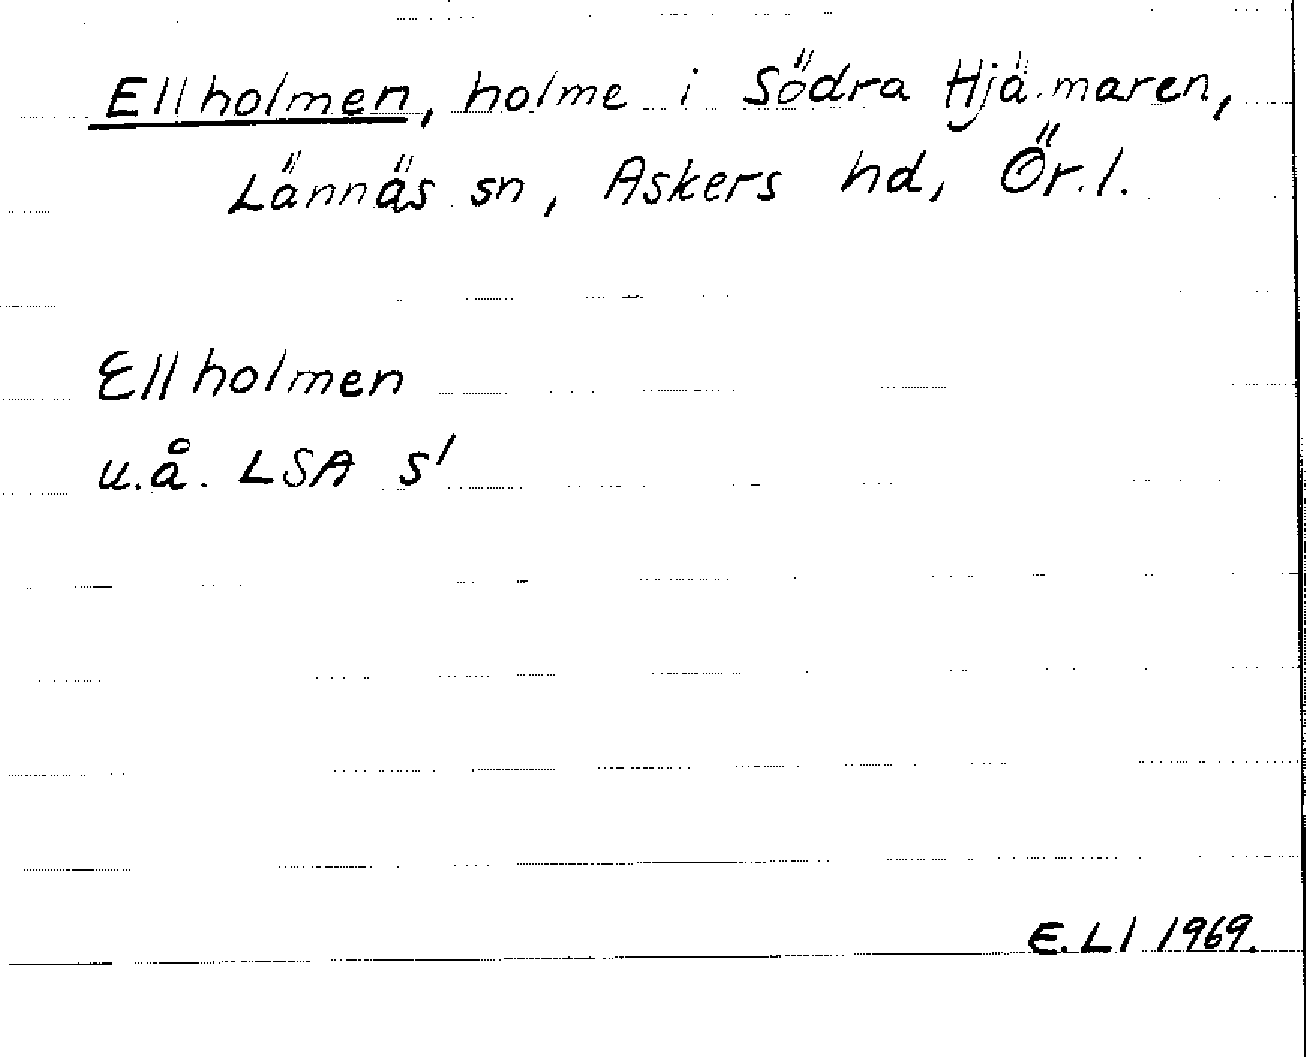 Ellholmen, holme i Södra Hjälmaren,
Lännäs sn, Askers hd, Ör. l.
Ellholmen
u.å. LSA S1
E. Ll 1969.